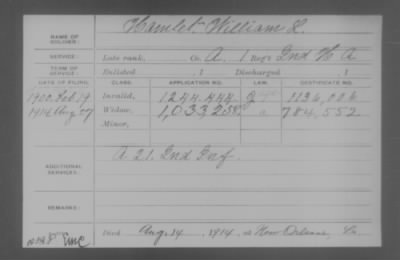 NAME OF SOLDIER: Hamlet William L.
SERVICE: Late rank, Co. A, 1 Reg't Ind H A
TERM OF SERVICE: Enlisted , 1 Discharged , 1
DATE OF FILING. CLASS. APPLICATION NO. LAW. CERTIFICATE NO.
1900. Feb 19 Invalid, 1244.444 1136,006
1914 Aug Widow, 1,033,258 784,552
Minor,
ADDITIONAL SERVICES: A 21 Ind Inf
REMARKS:
Died Aug 14, 1914, at New Orleans, La